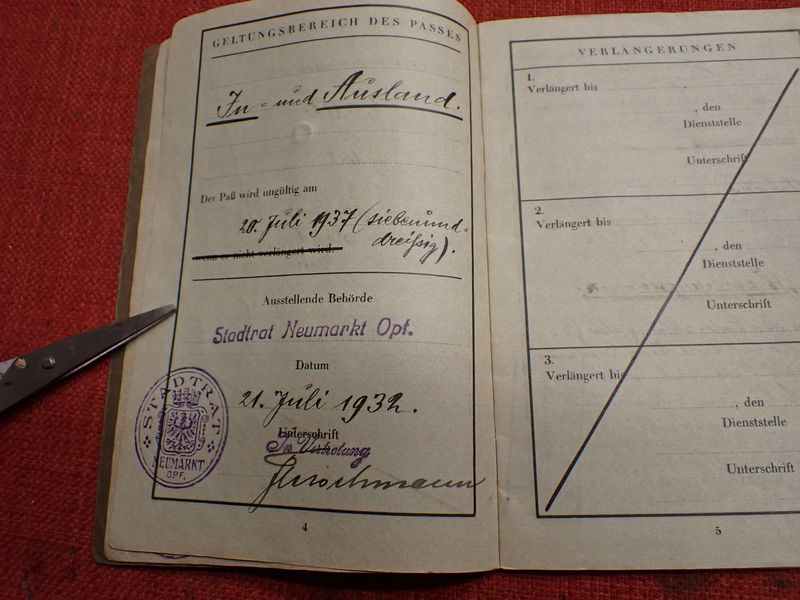 GELTUNGSBEREICH DES PASSES
In- und Ausland.
Der Paß wird ungültig am
20. Juli 1937 (siebenund-
dreißig).
wenn er nicht verlängert wird.
Ausstellende Behörde
Stadtrat Neumarkt Opf.
Datum
21. Juli 1932.
Unterschrift
In Vertretung
STADTRAT
NEUMARKT
OPF.
4
VERLÄNGERUNGEN
1.
Verlängert bis
, den
Dienststelle
Unterschrift
2.
Verlängert bis
, den
Dienststelle
Unterschrift
3.
Verlängert bis
, den
Dienststelle
Unterschrift
5